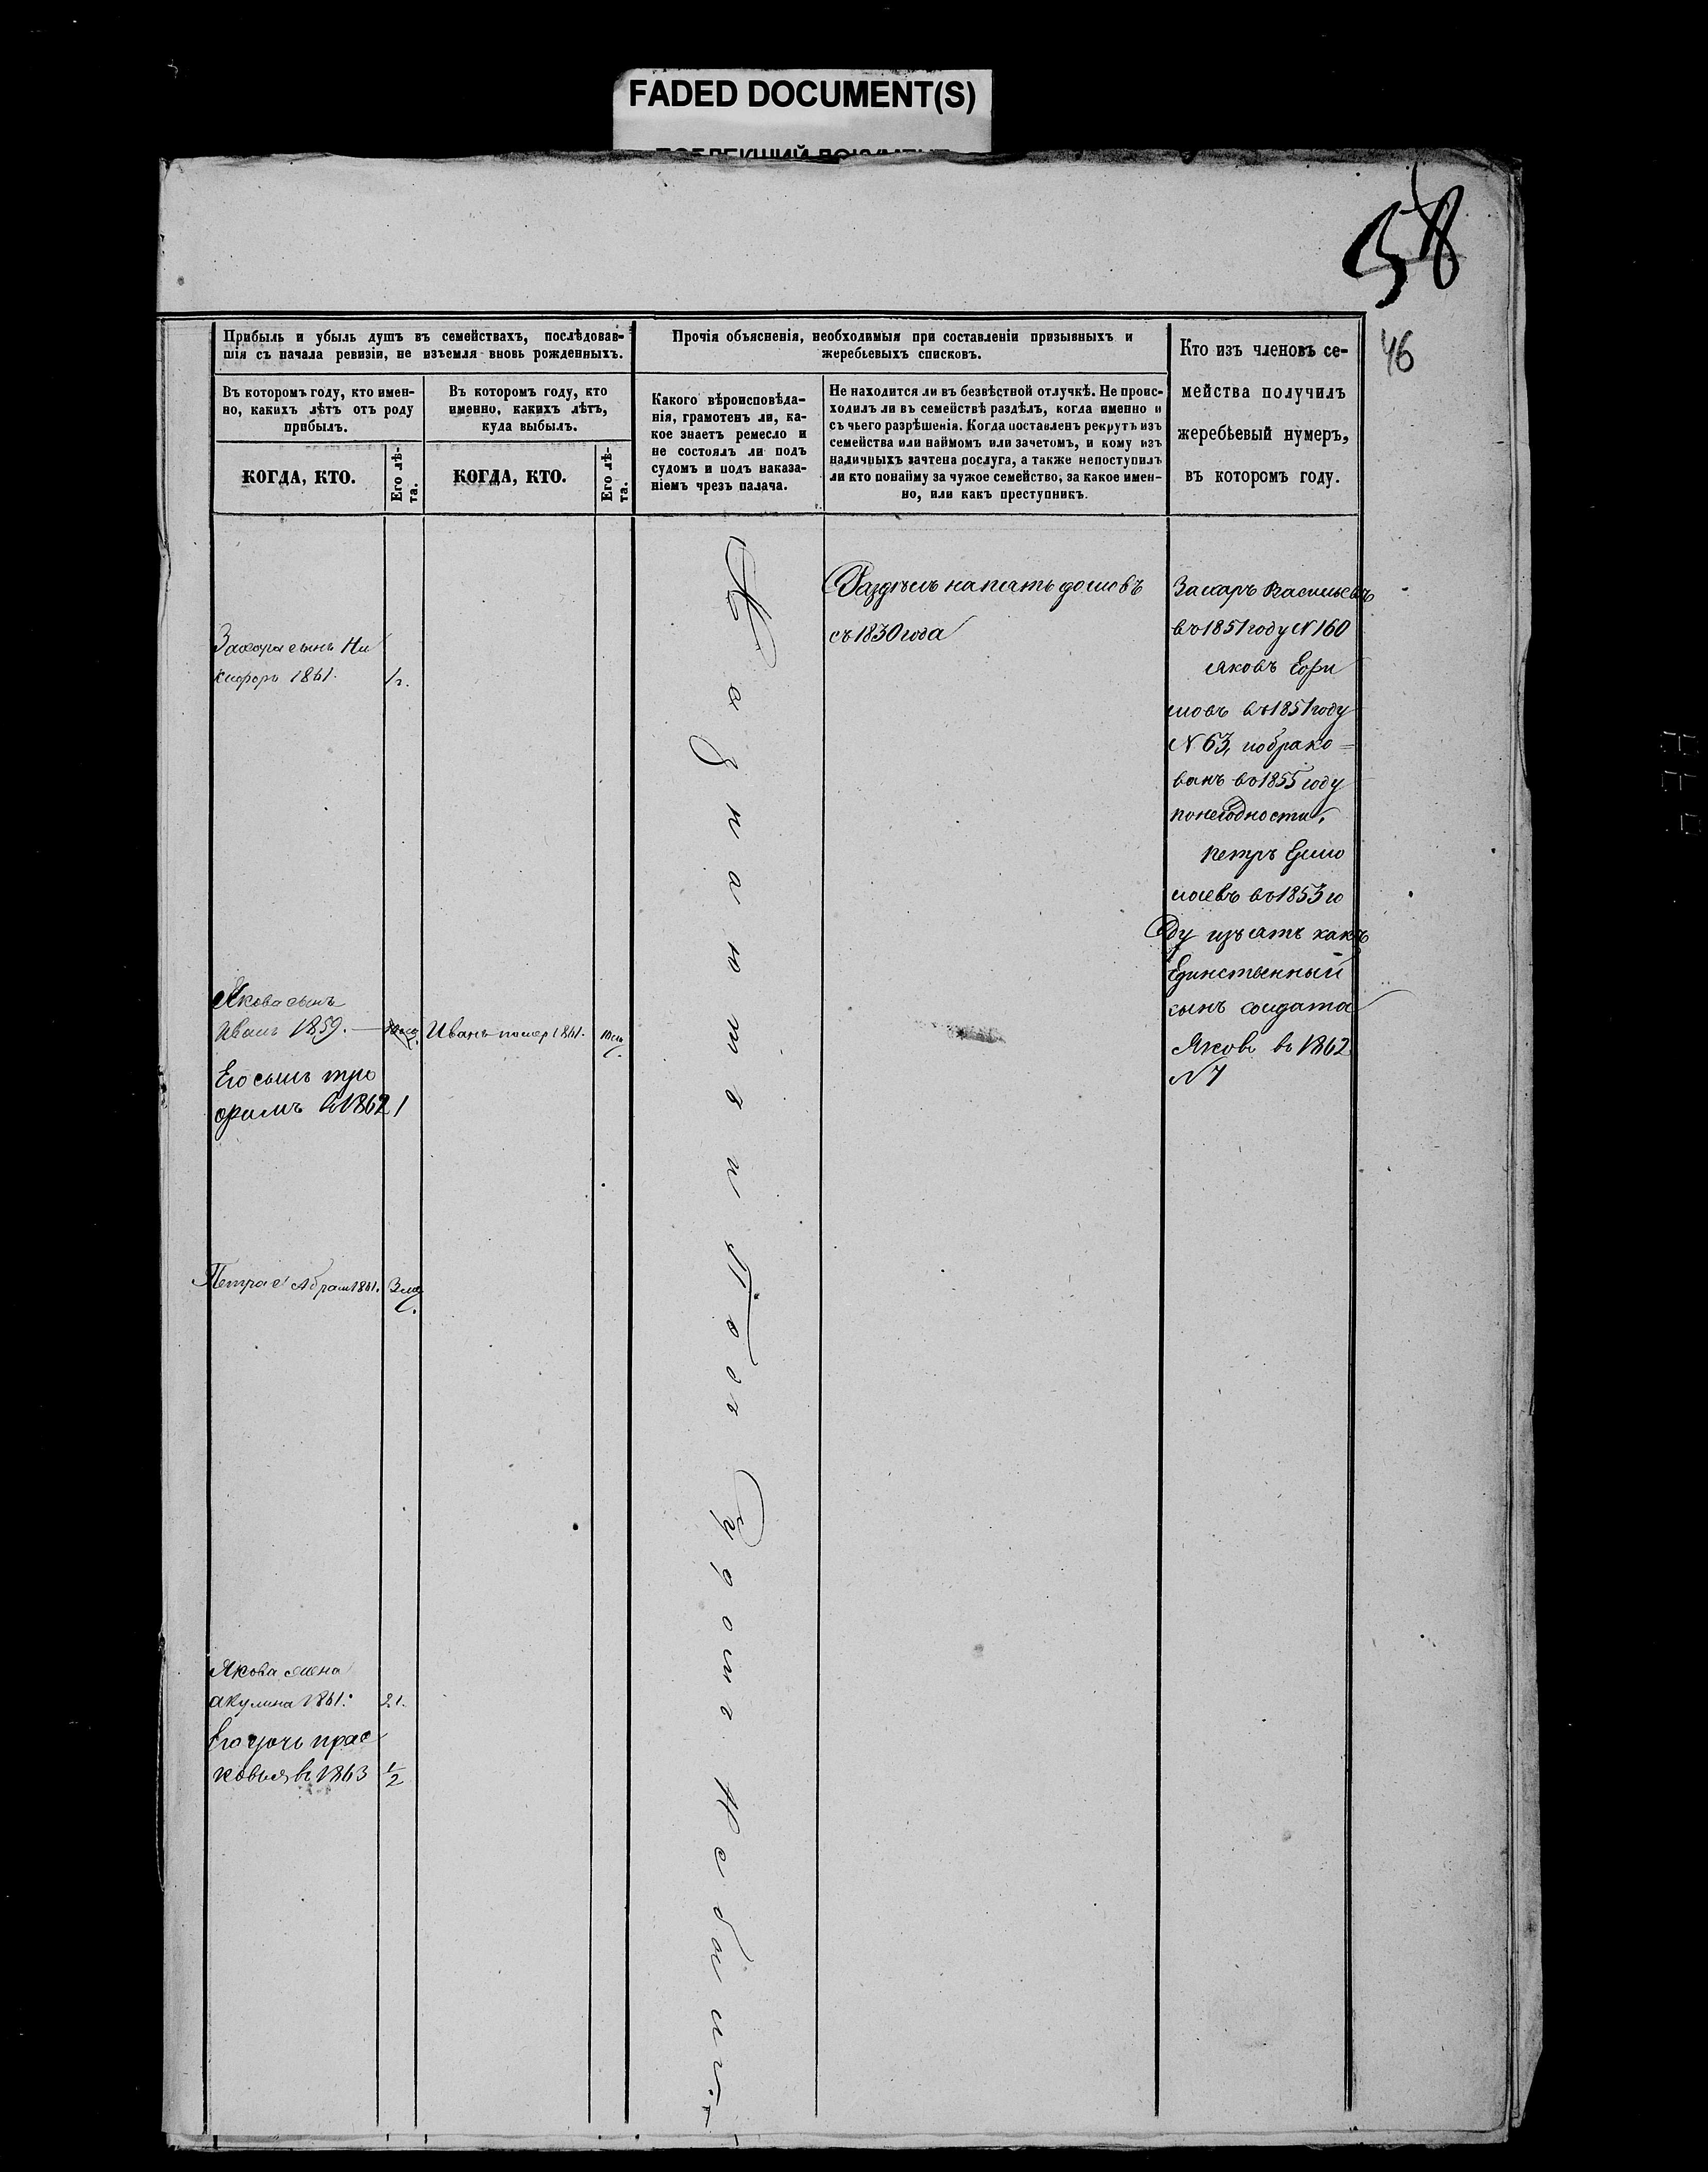 FADED DOCUMENT(S)
58
46
Прибыль и убыль душъ въ семействахъ, послѣдовав-
шія съ начала ревизіи, не изъемля вновь рожденныхъ.
Въ которомъ году, кто имен-
но, какихъ лѣтъ отъ роду
прибылъ.
Въ которомъ году, кто
именно, какихъ лѣтъ,
куда выбылъ.
КОГДА, КТО.
Его лѣ-
та.
КОГДА, КТО.
Его лѣ-
та.
Прочія объясненія, необходимыя при составленіи призывныхъ и
жеребьевыхъ списковъ.
Какого вѣроисповѣда-
нія, грамотенъ ли, ка-
кое знаетъ ремесло и
не состоялъ ли подъ
судомъ и подъ наказа-
ніемъ чрезъ палача.
Не находится ли въ безвѣстной отлучкѣ. Не проис-
ходилъ ли въ семействѣ раздѣлъ, когда именно и
съ чьего разрѣшенія. Когда поставленъ рекрутъ изъ
семейства или наймомъ или зачетомъ, и кому изъ
наличныхъ зачтена послуга, а также непоступилъ
ли кто понайму за чужое семейство, за какое имен-
но, или какъ преступникъ.
Кто изъ членовъ се-
мейства получилъ
жеребьевый нумеръ,
въ которомъ году.
Захара сынъ Ни
кифоръ 1861.
Якова сынъ
Иванъ 1859.
Его сынъ тро
фимъ в 1862 1
Петра с Абрам 1861. 3 мѣ.
Якова жена
акулина 1861. 21.
Его дочь прас
ковья в 1863 1/2
Иванъ помер 1861.
Незнаютъ и Подъ Судомъ Небыли
Раздѣлъ на пять домовъ
съ 1830 года
Захаръ Васильевъ
въ 1851 году N 160
Яковъ Ефи
мовъ въ 1851 году
N 63, побрако=
ванъ въ 1855 году
понегодности,
Петръ
въ 1853 го
ду изъятъ какъ
Единственный
сынъ солдата
Яковъ въ 1862
N 7